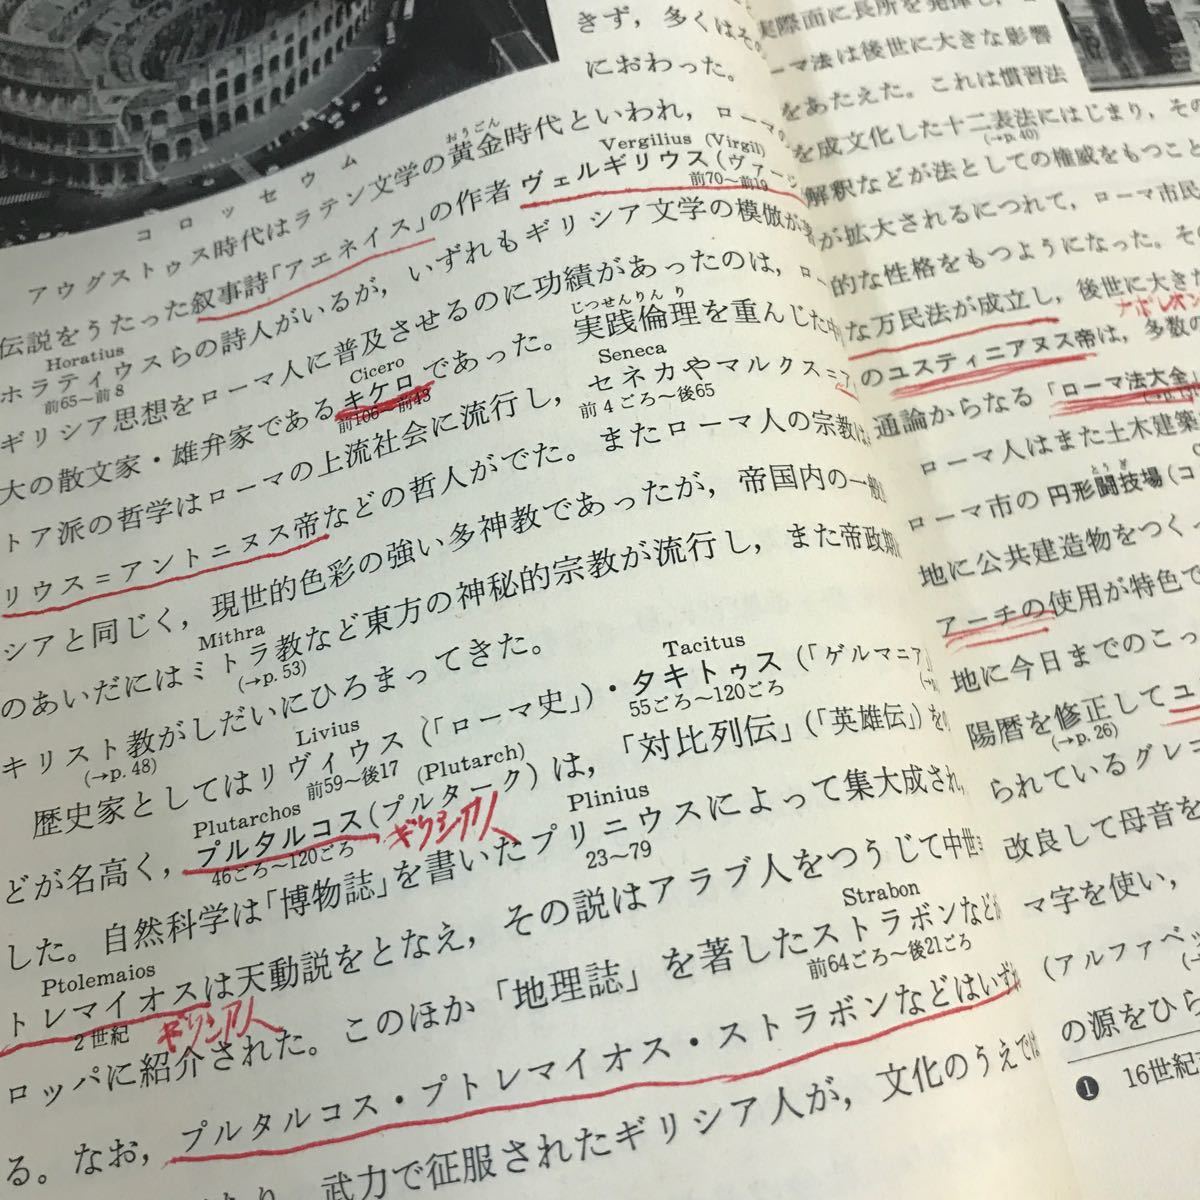 きず，多くはその
におわった。
コロッセウム
アウグストゥス時代はラテン文学の黄金時代といわれ，ローマの
おうごん
Vergilius (Virgil)
伝説をうたった叙事詩「アエネイス」の作者 ヴェルギリウス（ヴァージ
前70～前19
Horatius
ホラティウスらの詩人がいるが，いずれもギリシア文学の模倣が著
前65～前8
ギリシア思想をローマ人に普及させるのに功績があったのは，ロー
Cicero
じっせんりんり
大の散文家・雄弁家であるキケロであった。実践倫理を重んじた
前106～前43
Seneca
トア派の哲学はローマの上流社会に流行し，セネカやマルクス＝ア
前4ごろ～後65
リウス＝アントニヌス帝などの哲人がでた。またローマ人の宗教は
シアと同じく，現世的色彩の強い多神教であったが，帝国内の一般
Mithra
のあいだにはミトラ教など東方の神秘的宗教が流行し，また帝政期
(→p.53)
キリスト教がしだいにひろまってきた。
(→p.48)
Livius
Tacitus
歴史家としてはリヴィウス（「ローマ史」）・タキトゥス（「ゲルマニア」
前59～後17
55ごろ～120ごろ
Plutarchos
(Plutarch)
どが名高く，プルタルコス（プルターク）は，「対比列伝」（「英雄伝」）を
46ごろ～120ごろ
ギリシア人
Plinius
した。自然科学は「博物誌」を書いたプリニウスによって集大成され，
23～79
Ptolemaios
トレマイオスは天動説をとなえ，その説はアラブ人をつうじて中世
2世紀
ギリシア人
Strabon
ロッパに紹介された。このほか「地理誌」を著したストラボンなどが
前64ごろ～後21ごろ
る。なお，プルタルコス・プトレマイオス・ストラボンなどはいずれ
武力で征服されたギリシア人が，文化のうえでは
実際面に長所を発揮し，
ーマ法は後世に大きな影響
をあたえた。これは慣習法
を成文化した十二表法にはじまり，その
(→p.40)
解釈などが法としての権威をもつこと
が拡大されるにつれて，ローマ市民
的な性格をもつようになった。その
な万民法が成立し，後世に大きな
ナポレオ
のユスティニアヌス帝は，多数の
通論からなる「ローマ法大全」
ローマ人はまた土木建築
とうぎ
ローマ市の円形闘技場（コ
地に公共建造物をつく
アーチの使用が特色で
地に今日までのこっ
陽暦を修正してユ
(→p.26)
られているグレゴ
改良して母音を
マ字を使い，
（アルファベッ
の源をひら
❶ 16世紀